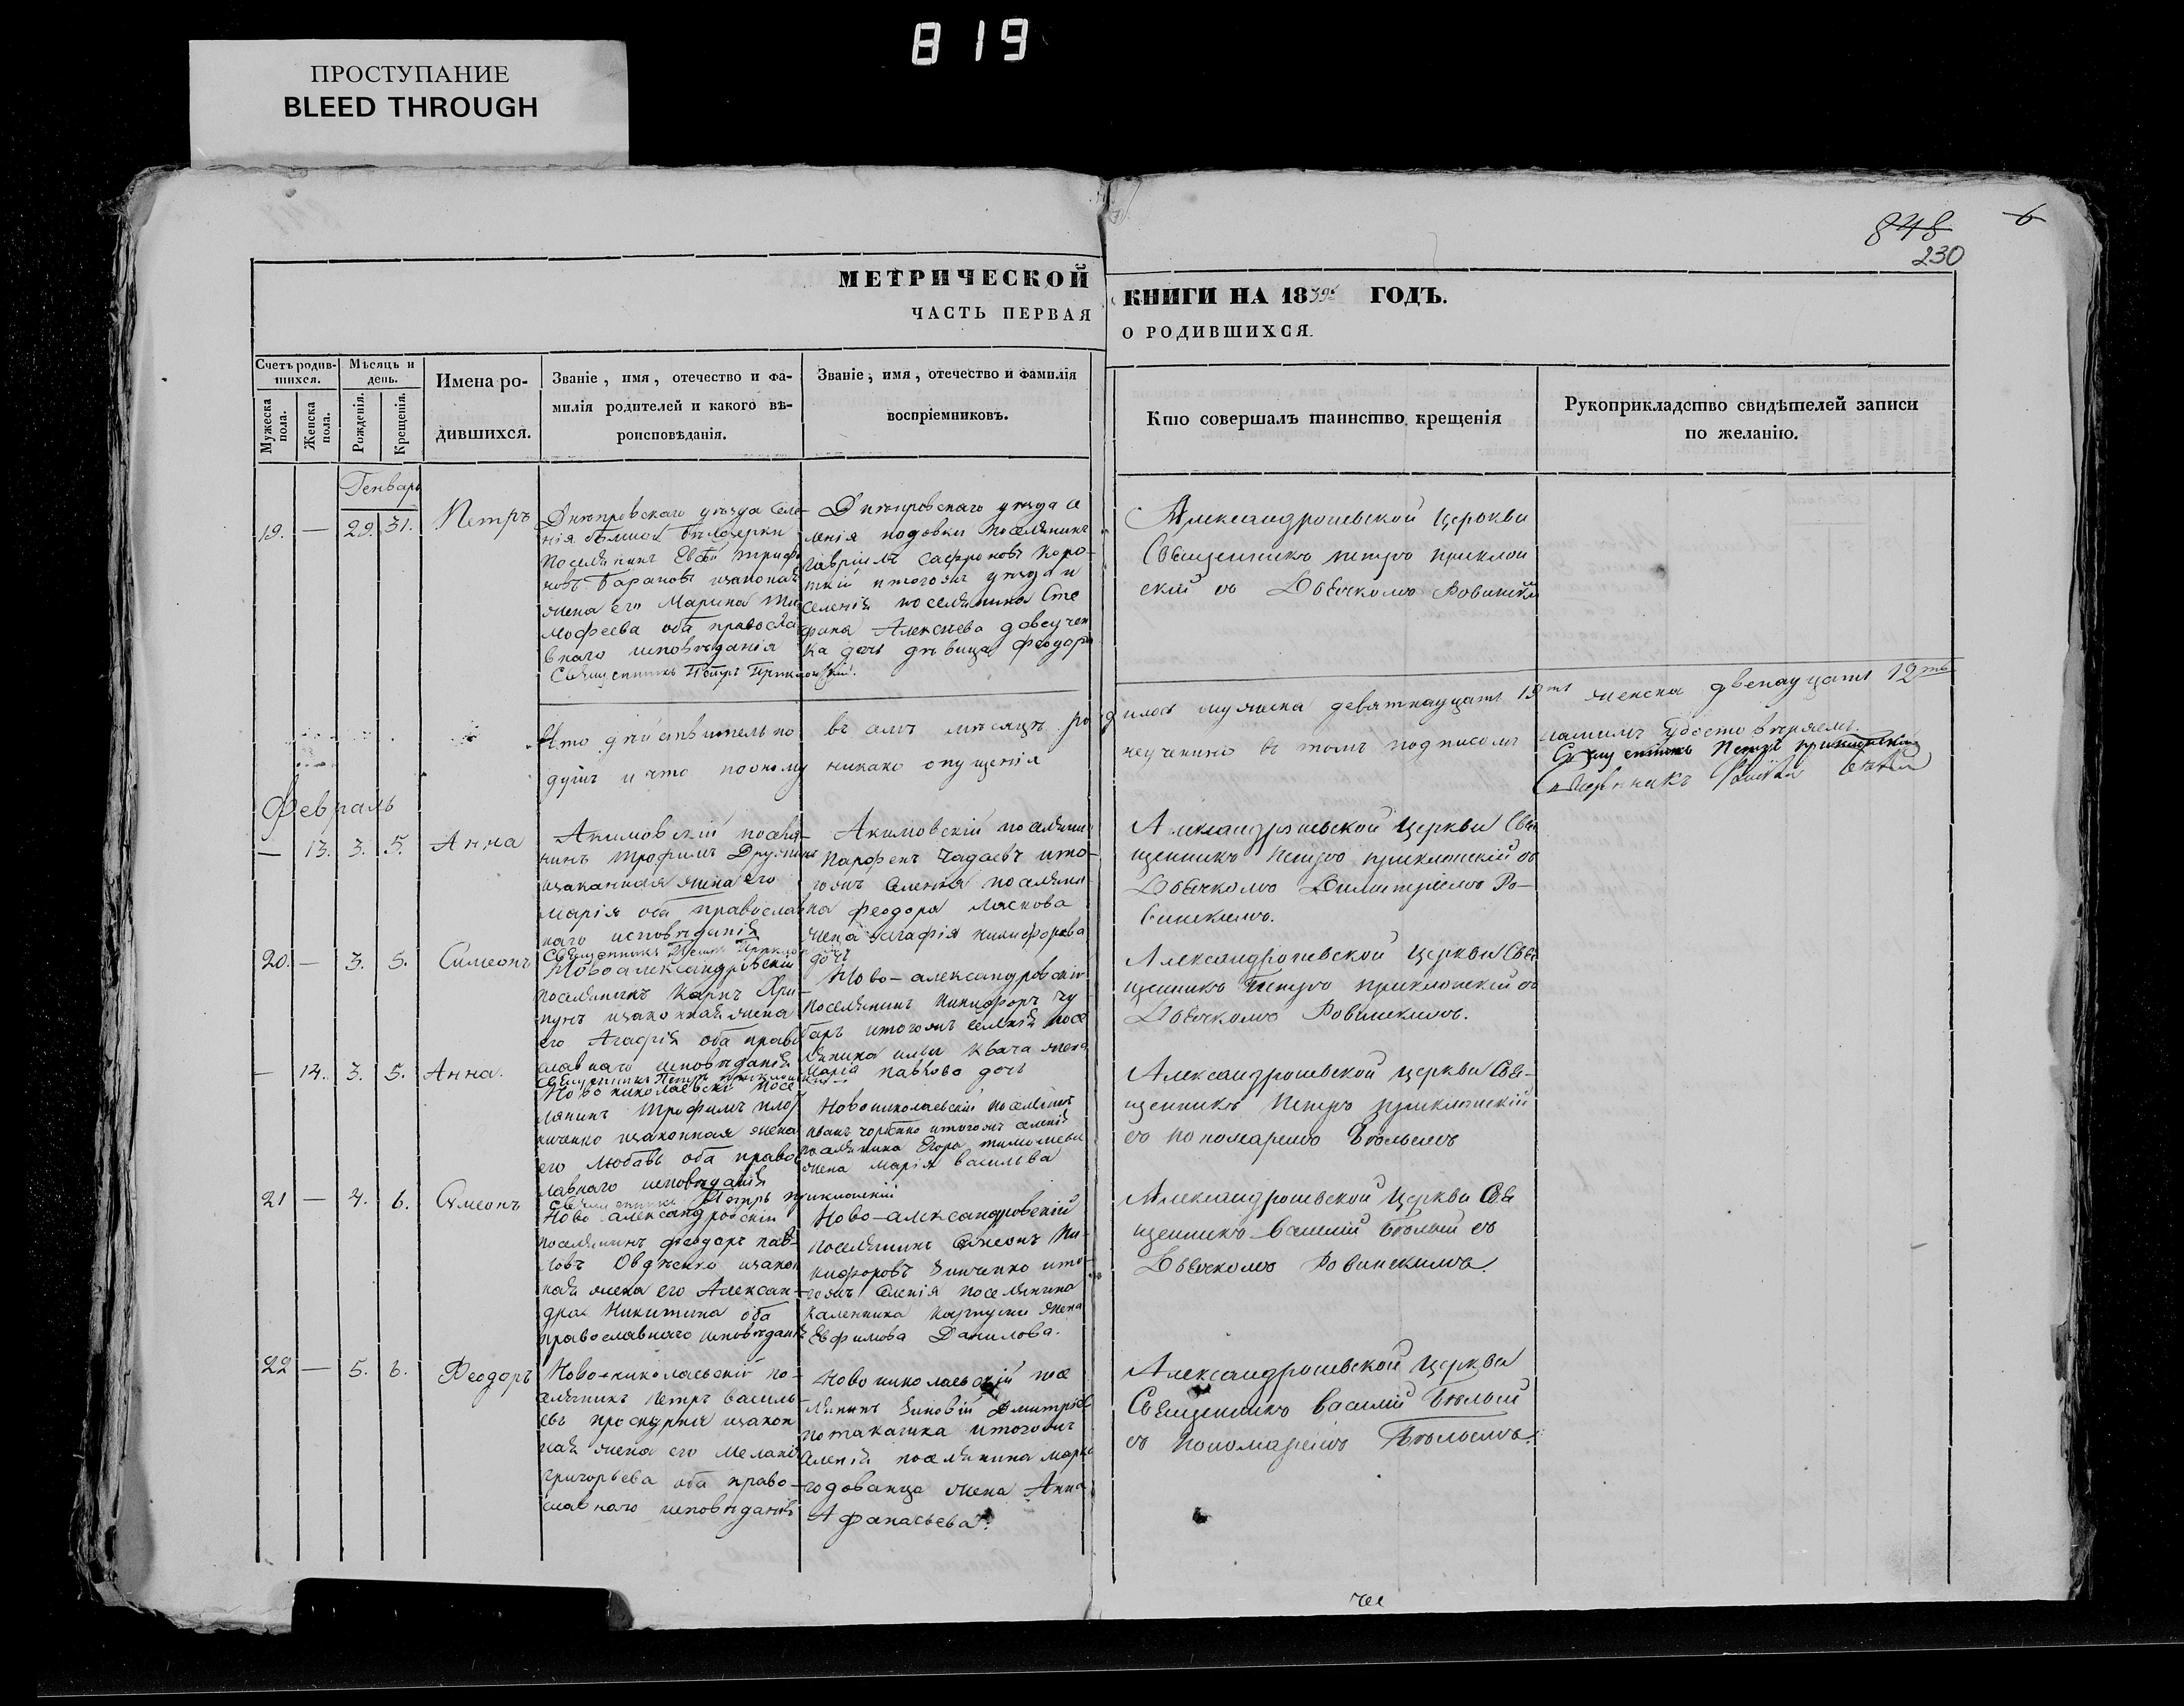 819
ПРОСТУПАНИЕ
BLEED THROUGH
848
6
230
МЕТРИЧЕСКОЙ
ЧАСТЬ ПЕРВАЯ
КНИГИ НА 1839 ГОДЪ.
О РОДИВШИХСЯ.
Счетъ родив-
шихся.
Мужеска пола.
Женска пола.
Мѣсяцъ и
день.
Рожденія.
Крещенія.
Имена ро-
дившихся.
Званіе, имя, отечество и фа-
милія родителей и какого вѣ-
роисповѣданія.
Званіе, имя, отечество и фамилія
воспріемниковъ.
Кто совершалъ таинство крещенія
Рукоприкладство свидѣтелей записи
по желанію.
Генварь
19. — 29. 31. Петръ
Днѣпровскаго уѣзда Селе-
нія Бѣлозерки
Поселянинъ Трифо-
новъ Барановъ изаконая
жена его Марина Ти
мофеева оба православ
внаго исповѣданія
Священникъ Петръ Приклонскій.
Днѣпровскаго уѣзда се
ленія поселянинъ
Гавріилъ Сафроновъ Коро-
ткій итогожъ уѣзда и
селенія поселянина Сте
фана Алексѣева
ка дочь дѣвица Феодора
Александровской Церкви
Священникъ Петръ Приклон
скій съ Дьячкомъ Ровински
Что дѣйствительно въ семъ мѣсяцѣ родилось мужеска девятнадцать 19ть женска двенадцать 12ть
душъ и что пооному никако опущенія неучинено въ томъ подписомъ нашимъ удостовѣряемъ.
Священникъ Петръ Приклонскій
Священникъ
Февраль
— 13. 3. 5. Анна
Акимовскій поселя-
нинъ Трофимъ
изаконная жена его
Марія оба православ
наго исповѣданія
Священникъ Петръ Приклонскій
Акимовскій поселянин
Парфенъ Чадаевъ ито-
гожъ Селенія поселяни-
на Феодора Ласкова
жена Агафія Никифорова
дочь
Александровской Церкви Свя
щенникъ Петръ Приклонскій съ
Дьячкомъ Димитріемъ Ро-
винскимъ.
20. — 3. 5. Симеонъ
Новоалександровскій
поселянинъ Карпъ Хри-
пунъ изаконная жена
его Агафія оба право
славнаго исповѣданія
Священникъ Петръ Приклонскій
Ново-александровскій
поселянинъ Никифоръ Чу
барь итогожъ селенія посе
лянина Ильи Квача жена
Марія Павлова дочь
Александровской Церкви Свя
щенникъ Петръ Приклонскій съ
Дьячкомъ Ровинскимъ.
— 14. 3. 5. Анна.
Новониколаевскій посе
лянинъ Трофимъ
изаконная жена
его Любовь оба правос
лавнаго исповѣданія
Священникъ Петръ Приклонскій
Новониколаевскій поселянинъ
Иванъ итогожъ селенія
поселянина Егора
жена Марія Васильва
Александровской Церкви Свя-
щенникъ Петръ Приклонскій
съ Пономаремъ Бѣлымъ
21 — 4. 6. Симеонъ
Ново александровскій
поселянинъ Феодоръ Пав-
ловъ изакон
ная жена его Алексан-
дра Никитина оба
православнаго исповѣданія
Ново-александровскій
поселянинъ Симеонъ Ни-
кифоровъ Зинченко ито-
гожъ Селенія поселянина
жена
Евфимова Данилова.
Александровской Церкви Свя
щенникъ Василій Бѣлый съ
Дьячкомъ Ровинскимъ.
22 — 5. 6. Феодоръ
Ново-николаевскій по-
селянинъ Петръ Василь-
евъ изакон
ная жена его Меланія
Григорьева оба право-
славнаго исповѣданія
Ново николаевскій посе
лянинъ Зиновій Дмитріев
итогожъ
Селенія поселянина Марка
Годованца жена Анна
Афанасьева.
Александровской Церкви
Священникъ Василій Бѣлый
съ Пономаремъ Бѣлымъ.